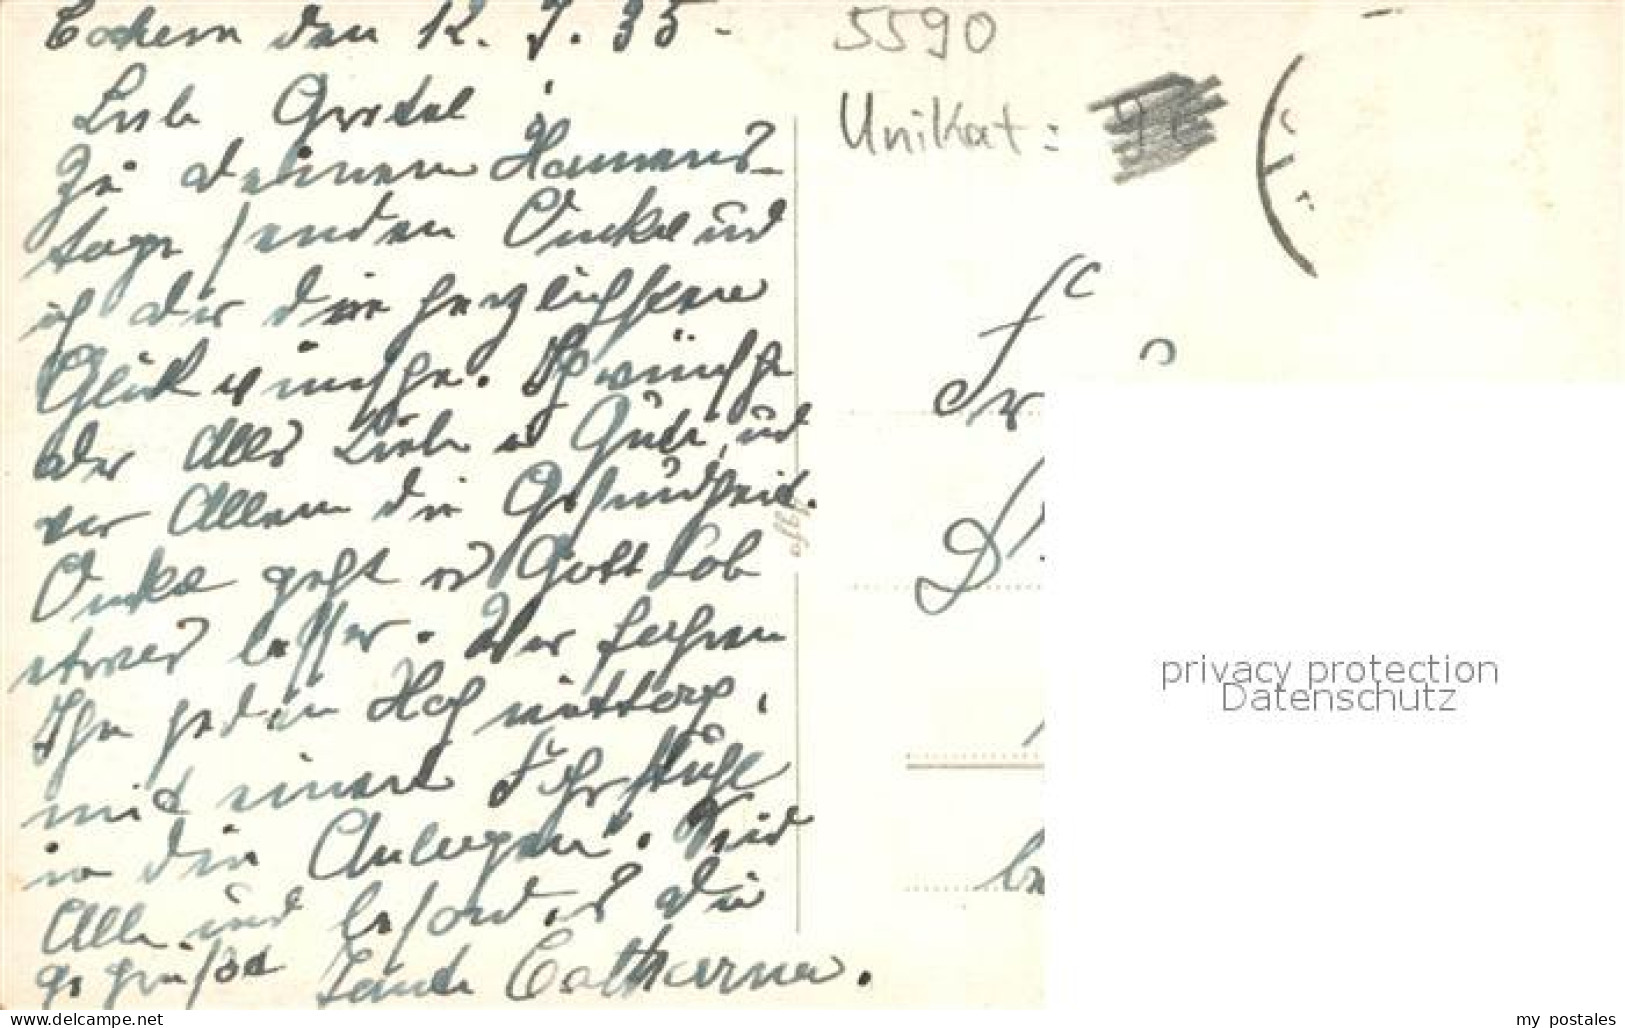 Cochem den 12. 7. 35.
5590
Liebe Gretel!
Unikat:
Zu deinem Namens-
tage senden Onkel und
ich dir die herzlichsten
Glückwünsche. Ich wünsche
dir Alles Liebe u Gute, und
vor Allem die Gesundheit.
Onkel geht es Gott Lob
etwas besser. Wir fahren
Ihn jeden Nachmittag,
mit einem Fahrstuhl
in die Anlagen. Seid
Alle und besonders du
gegrüßt Tante Catharina.
Fr
privacy protection
Datenschutz
www.delcampe.net
my_postales